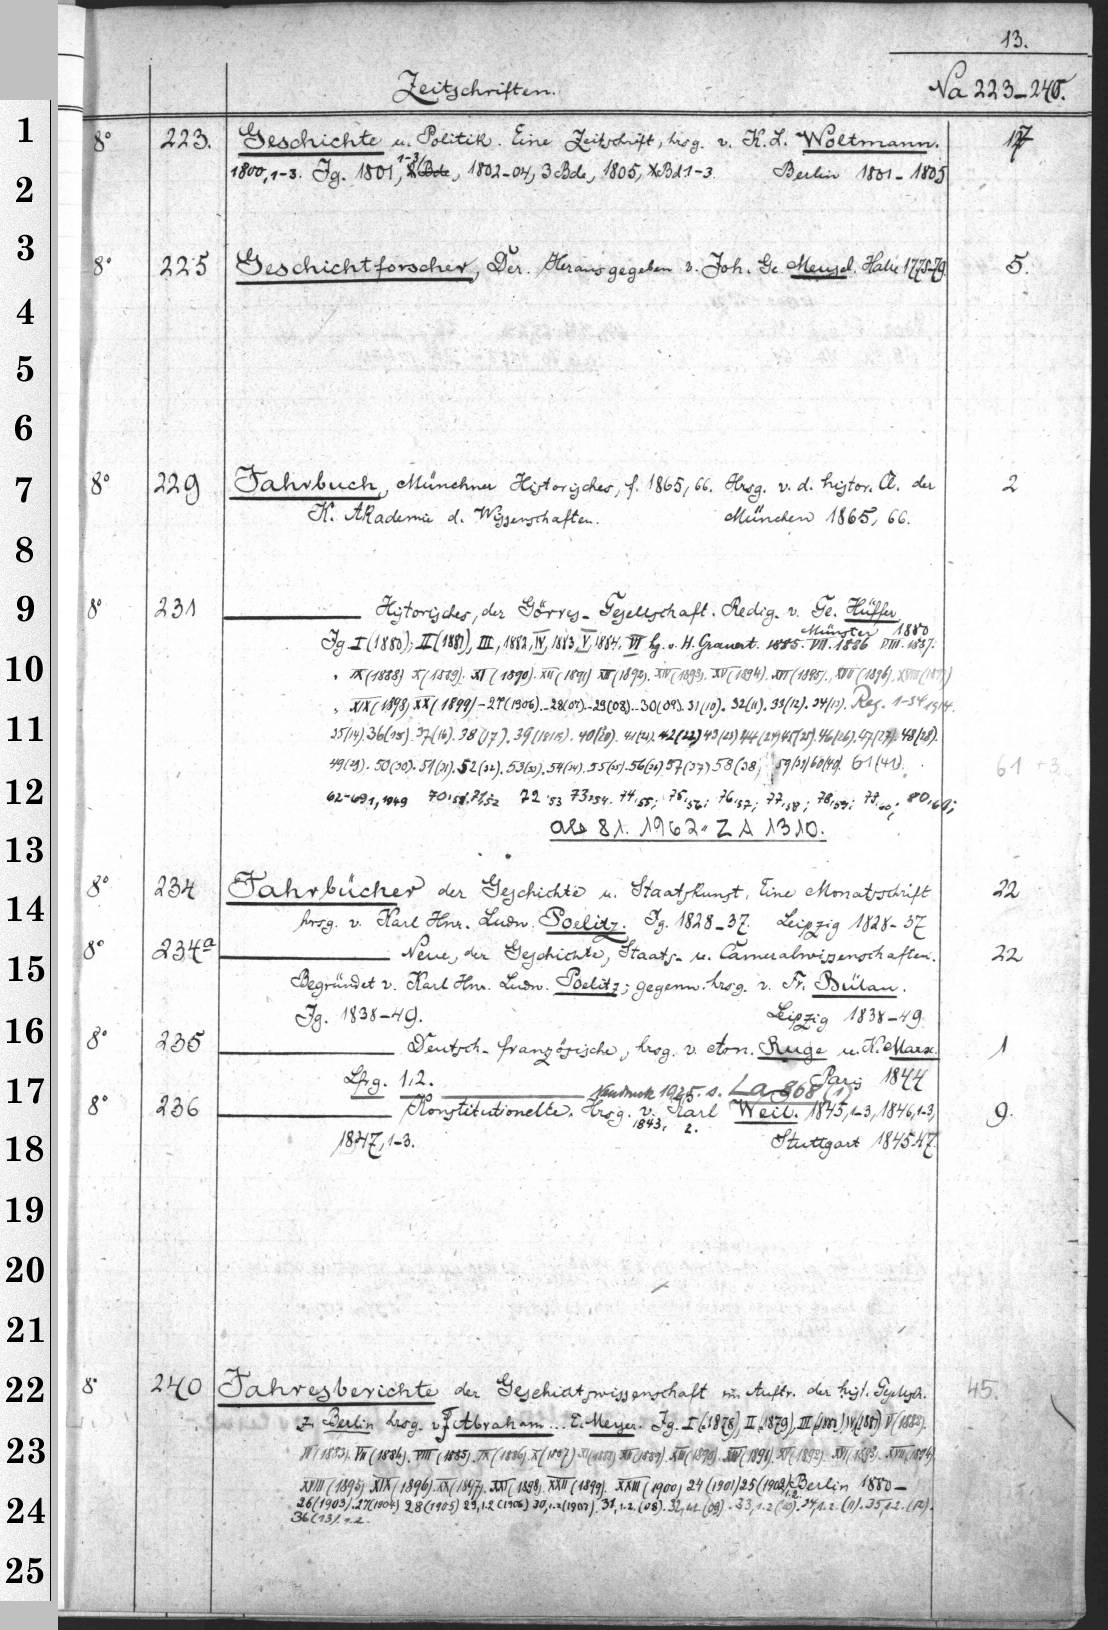 13.
Zeitschriften. Na 223-240.
8° 223. Geschichte u. Politik. Eine Zeitschrift, hrsg. v. K. L. Woltmann. 17
1800,1-3. Jg. 1801, 1-3 Bde, 1802-04, 3 Bde, 1805, Bd 1-3. Berlin 1801-1805
8° 225 Geschichtforscher, Der. Herausgegeben v. Joh. Ge. Meusel. Halle 1775-79. 5.
8° 229 Jahrbuch, Münchner Historisches, f. 1865, 66. Hrsg. v. d. histor. Cl. der 2
K. Akademie d. Wissenschaften. München 1865, 66.
8° 231 Historisches, der Görres-Gesellschaft. Redig. v. Ge. Hüffer
Münster 1880
Jg. I (1880); II (1881), III, 1882, IV, 1883, V, 1884. VI hg. v. H. Grauert. 1885. VII. 1886 VIII. 1887.
IX (1888) X (1889). XI (1890). XII (1891) XIII (1892). XIV (1893). XV (1894). XVI (1895). XVII (1896). XVIII (1897)
XIX (1898) XX (1899) - 27 (1906). - 28 (07) - 29 (08) - 30 (09). 31 (10). 32 (11). 33 (12). 34 (13). Reg. 1-34 1914.
35 (14) 36 (15). 37 (16). 38 (17). 39 (18/19). 40 (20). 41 (21). 42 (22) 43 (23) 44 (24) 45 (25). 46 (26). 47 (27) 48 (28).
49 (29). 50 (30). 51 (31). 52 (32). 53 (33). 54 (34). 55 (35). 56 (36) 57 (37) 58 (38) 59 (39) 60 (40) 61 (41). 61 + 3
62-69,1,1949 70,51. 71,52 72,53 73,54. 74,55; 75,56; 76,57; 77,58; 78,59; 79,60; 80,61;
ab 81. 1962 = Z A 1310.
8° 234 Jahrbücher der Geschichte u. Staatskunst. Eine Monatsschrift 22
hrsg. v. Karl Hnr. Ludw. Poelitz. Jg. 1828-37. Leipzig 1828-37
8° 234a Neue, der Geschichte, Staats- u. Cameralwissenschaften. 22
Begründet v. Karl Hnr. Ludw. Poelitz; gegenw. hrsg. v. Fr. Bülau.
Jg. 1838-49. Leipzig 1838-49.
8° 235 Deutsch-französische, hrsg. v. Arn. Ruge u. K. Marx. 1
Lfg. 1,2. Paris 1844
Neudruck 1925. s. La 868 (1)
8° 236 Konstitutionelle. Hrsg. v. Karl Weil. 1845,1-3, 1846,1-3, 9.
1843, 2.
1847,1-3. Stuttgart 1845-47.
8° 240 Jahresberichte der Geschichtswissenschaft im Auftr. der hist. Gesellsch. 45.
z. Berlin hrsg. v. F. Abraham... E. Meyer. Jg. I (1878), II (1879), III (1880), IV (1881) V (1882).
VI (1883). VII (1884). VIII (1885). IX (1886). X (1887) XI (1888) XII (1889). XIII (1890). XIV (1891). XV (1892). XVI (1893). XVII (1894).
XVIII (1895). XIX (1896). XX (1897). XXI (1898). XXII (1899). XXIII (1900). 24 (1901) 25 (1902) 1.2 Berlin 1880-
26 (1903). 27 (1904) 28 (1905) 29,1.2 (1906) 30,1.2 (1907). 31,1.2. (08). 32,1.2 (09). 33,1.2 (10). 34,1.2. (11). 35,1.2. (12).
36 (13). 1.2.
1
2
3
4
5
6
7
8
9
10
11
12
13
14
15
16
17
18
19
20
21
22
23
24
25